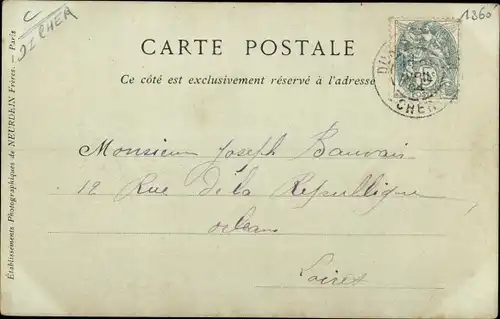 C
DICHER
1360
CARTE POSTALE
Ce côté est exclusivement réservé à l'adresse
CHER
Monsieur Joseph Bauvais
12 Rue de la République
Orléans
Loiret
Établissements Photographiques de NEURDEIN Frères. — Paris